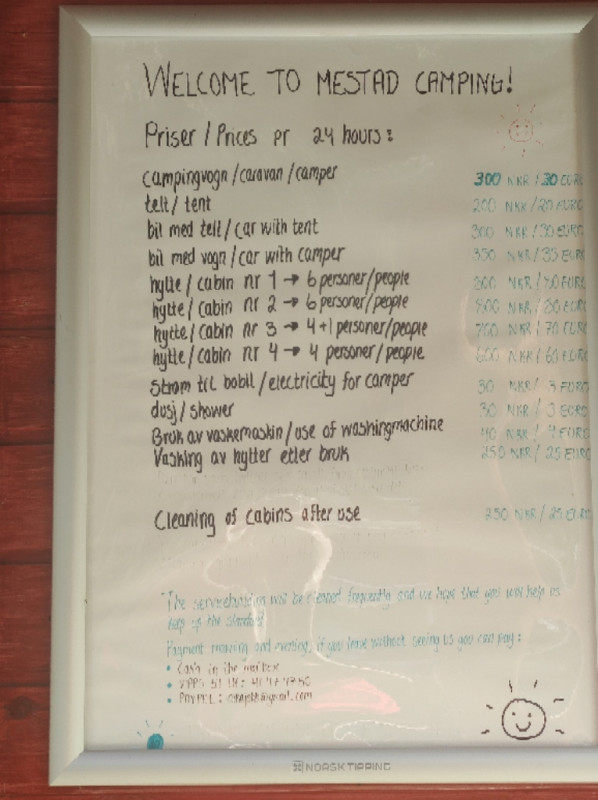 WELCOME TO MESTAD CAMPING!
Priser / Prices pr 24 hours:
campingvogn/caravan/camper 300 NKR / 30 EURO
telt/tent 200 NKR / 20 EURO
bil med telt/car with tent 300 NKR / 30 EURO
bil med vogn/car with camper 350 NKR / 35 EURO
hytte/cabin nr 1 → 6 personer/people NKR / EURO
hytte/cabin nr 2 → 6 personer/people NKR / EURO
hytte/cabin nr 3 → 4+1 personer/people 700 NKR / 70 EURO
hytte/cabin nr 4 → 4 personer/people 600 NKR / 60 EURO
Strøm til bobil/electricity for camper 30 NKR / 3 EURO
dusj/shower 30 NKR / 3 EURO
Bruk av vaskemaskin/use of washingmachine 40 NKR / 4 EURO
Vasking av hytter etter bruk 250 NKR / 25 EURO
Cleaning of cabins after use 250 NKR / 25 EURO
The servicebuilding will be cleaned frequently and we hope that you will help us
keep up the standard
Payment morning and evening, if you leave without seeing us you can pay:
• Cash in the mailbox
• VIPPS
• PAYPAL: @gmail.com
NORSK TIPPING